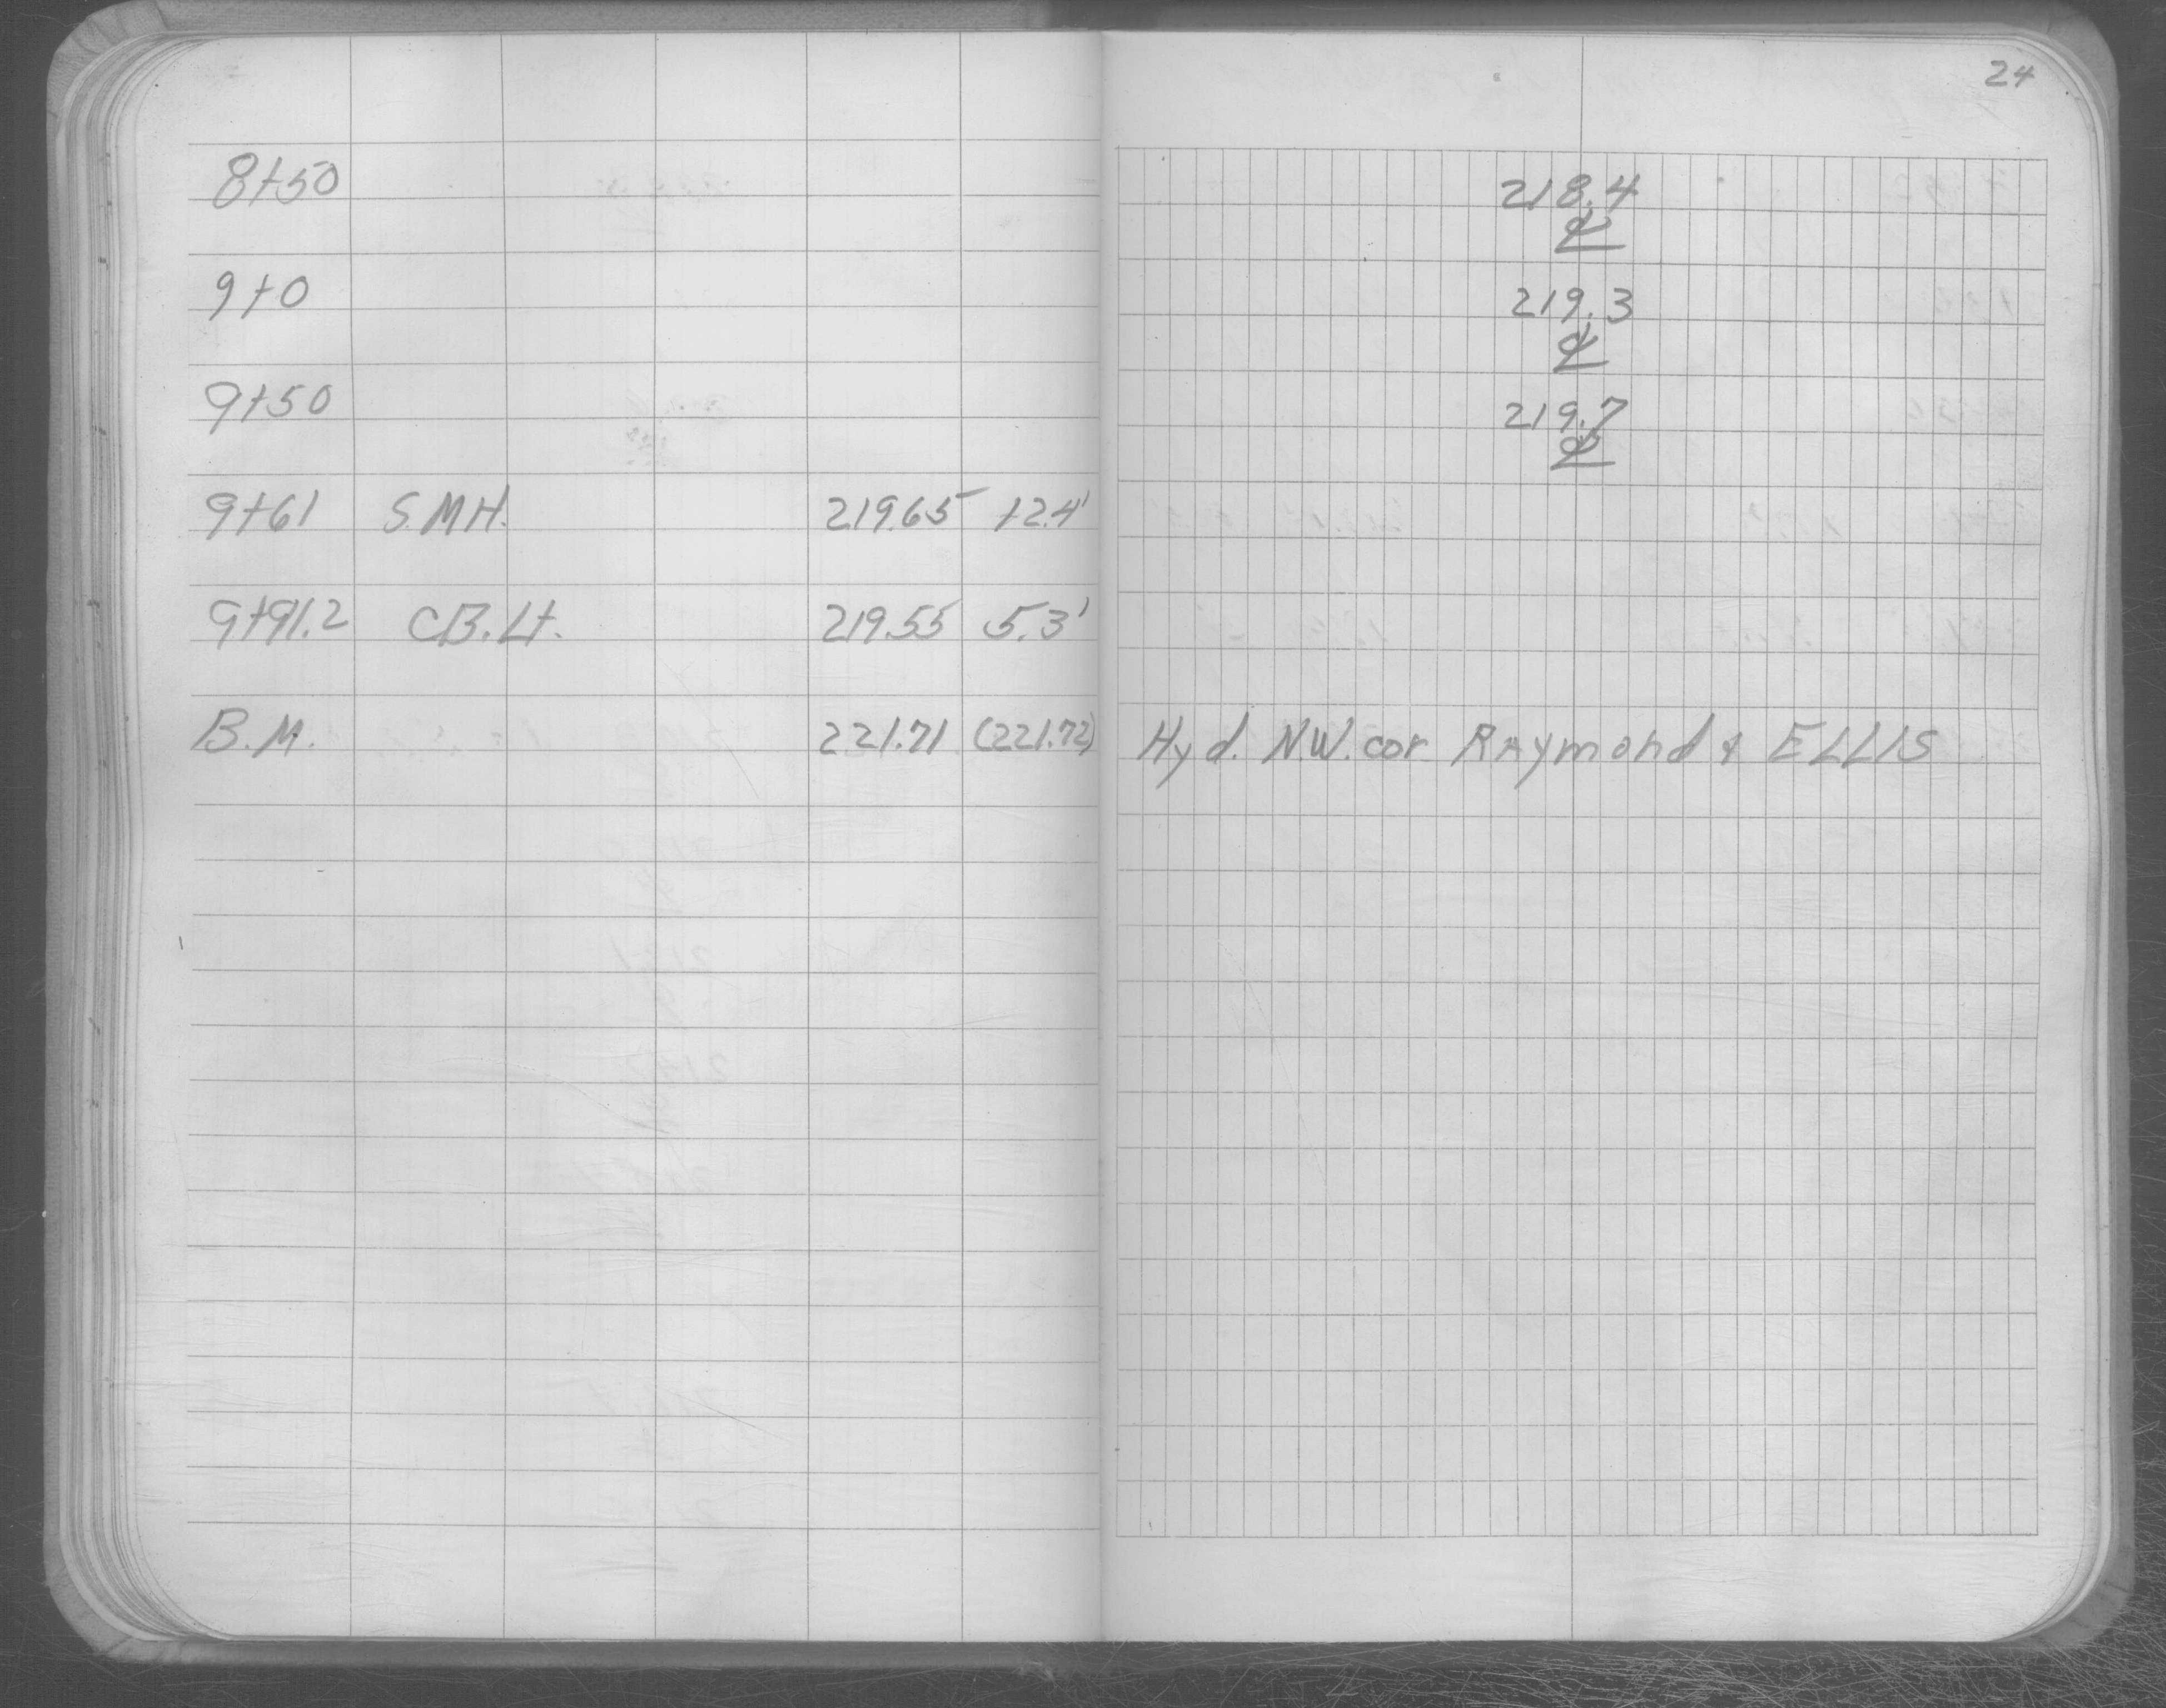 24
8+50 218.4
℄
9+0 219.3
℄
9+50 219.7
℄
9+61 S.MH. 219.65 12.4'
9+91.2 CB.Lt. 219.55 5.3'
B.M. 221.71 (221.72) Hyd. N.W. cor. Raymond & ELLIS